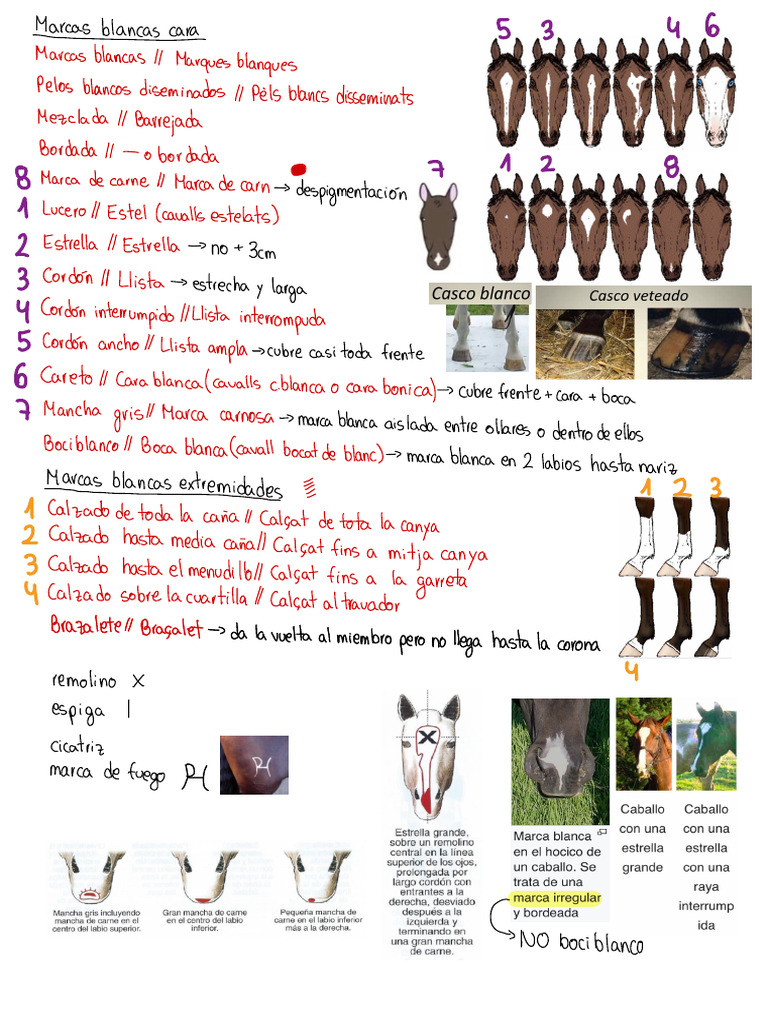 Marcas blancas cara
Marcas blancas // Marques blanques
Pelos blancos diseminados // Pèls blancs disseminats
Mezclada // Barrejada
Bordada // — o bordada
8 Marca de carne // Marca de carn → despigmentación
1 Lucero // Estel (cavalls estelats)
2 Estrella // Estrella → no + 3cm
3 Cordón // Llista → estrecha y larga
4 Cordón interrumpido // Llista interrompuda
5 Cordón ancho // Llista ampla → cubre casi toda frente
6 Careto // Cara blanca (cavalls c.blanca o cara bonica) → cubre frente + cara + boca
7 Mancha gris // Marca carnosa → marca blanca aislada entre ollares o dentro de ellos
Bociblanco // Boca blanca (cavall bocat de blanc) → marca blanca en 2 labios hasta nariz
5 3 4 6
7 1 2 8
Casco blanco
Casco veteado
Marcas blancas extremidades
1 Calzado de toda la caña // Calçat de tota la canya
2 Calzado hasta media caña // Calçat fins a mitja canya
3 Calzado hasta el menudillo // Calçat fins a la garreta
4 Calzado sobre la cuartilla // Calçat al travador
Brazalete // Braçalet → da la vuelta al miembro pero no llega hasta la corona
1 2 3
4
remolino X
espiga |
cicatriz
marca de fuego
X
Estrella grande,
sobre un remolino
central en la línea
superior de los ojos,
prolongada por
largo cordón con
entrantes a la
derecha, desviado
después a la
izquierda y
terminando en
una gran mancha
de carne.
Marca blanca
en el hocico de
un caballo. Se
trata de una
marca irregular
y bordeada
→ NO bociblanco
Caballo
con una
estrella
grande
Caballo
con una
estrella
con una
raya
interrump
ida
Mancha gris incluyendo
mancha de carne en el
centro del labio superior.
Gran mancha de carne
en el centro del labio
inferior.
Pequeña mancha de
carne en el labio inferior
más a la derecha.